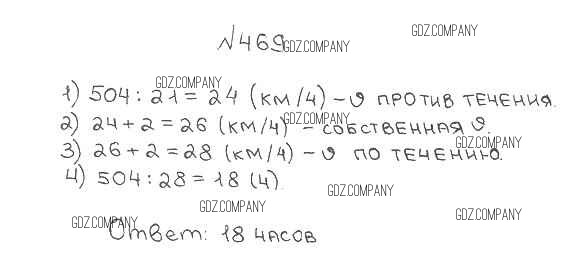 №469
1) 504 : 21 = 24 (км/ч) – υ против течения.
2) 24 + 2 = 26 (км/ч) – собственная υ.
3) 26 + 2 = 28 (км/ч) – υ по течению.
4) 504 : 28 = 18 (ч).
Ответ: 18 часов
GDZ.COMPANY
GDZ.COMPANY
GDZ.COMPANY
GDZ.COMPANY
GDZ.COMPANY
GDZ.COMPANY
GDZ.COMPANY
GDZ.COMPANY
GDZ.COMPANY